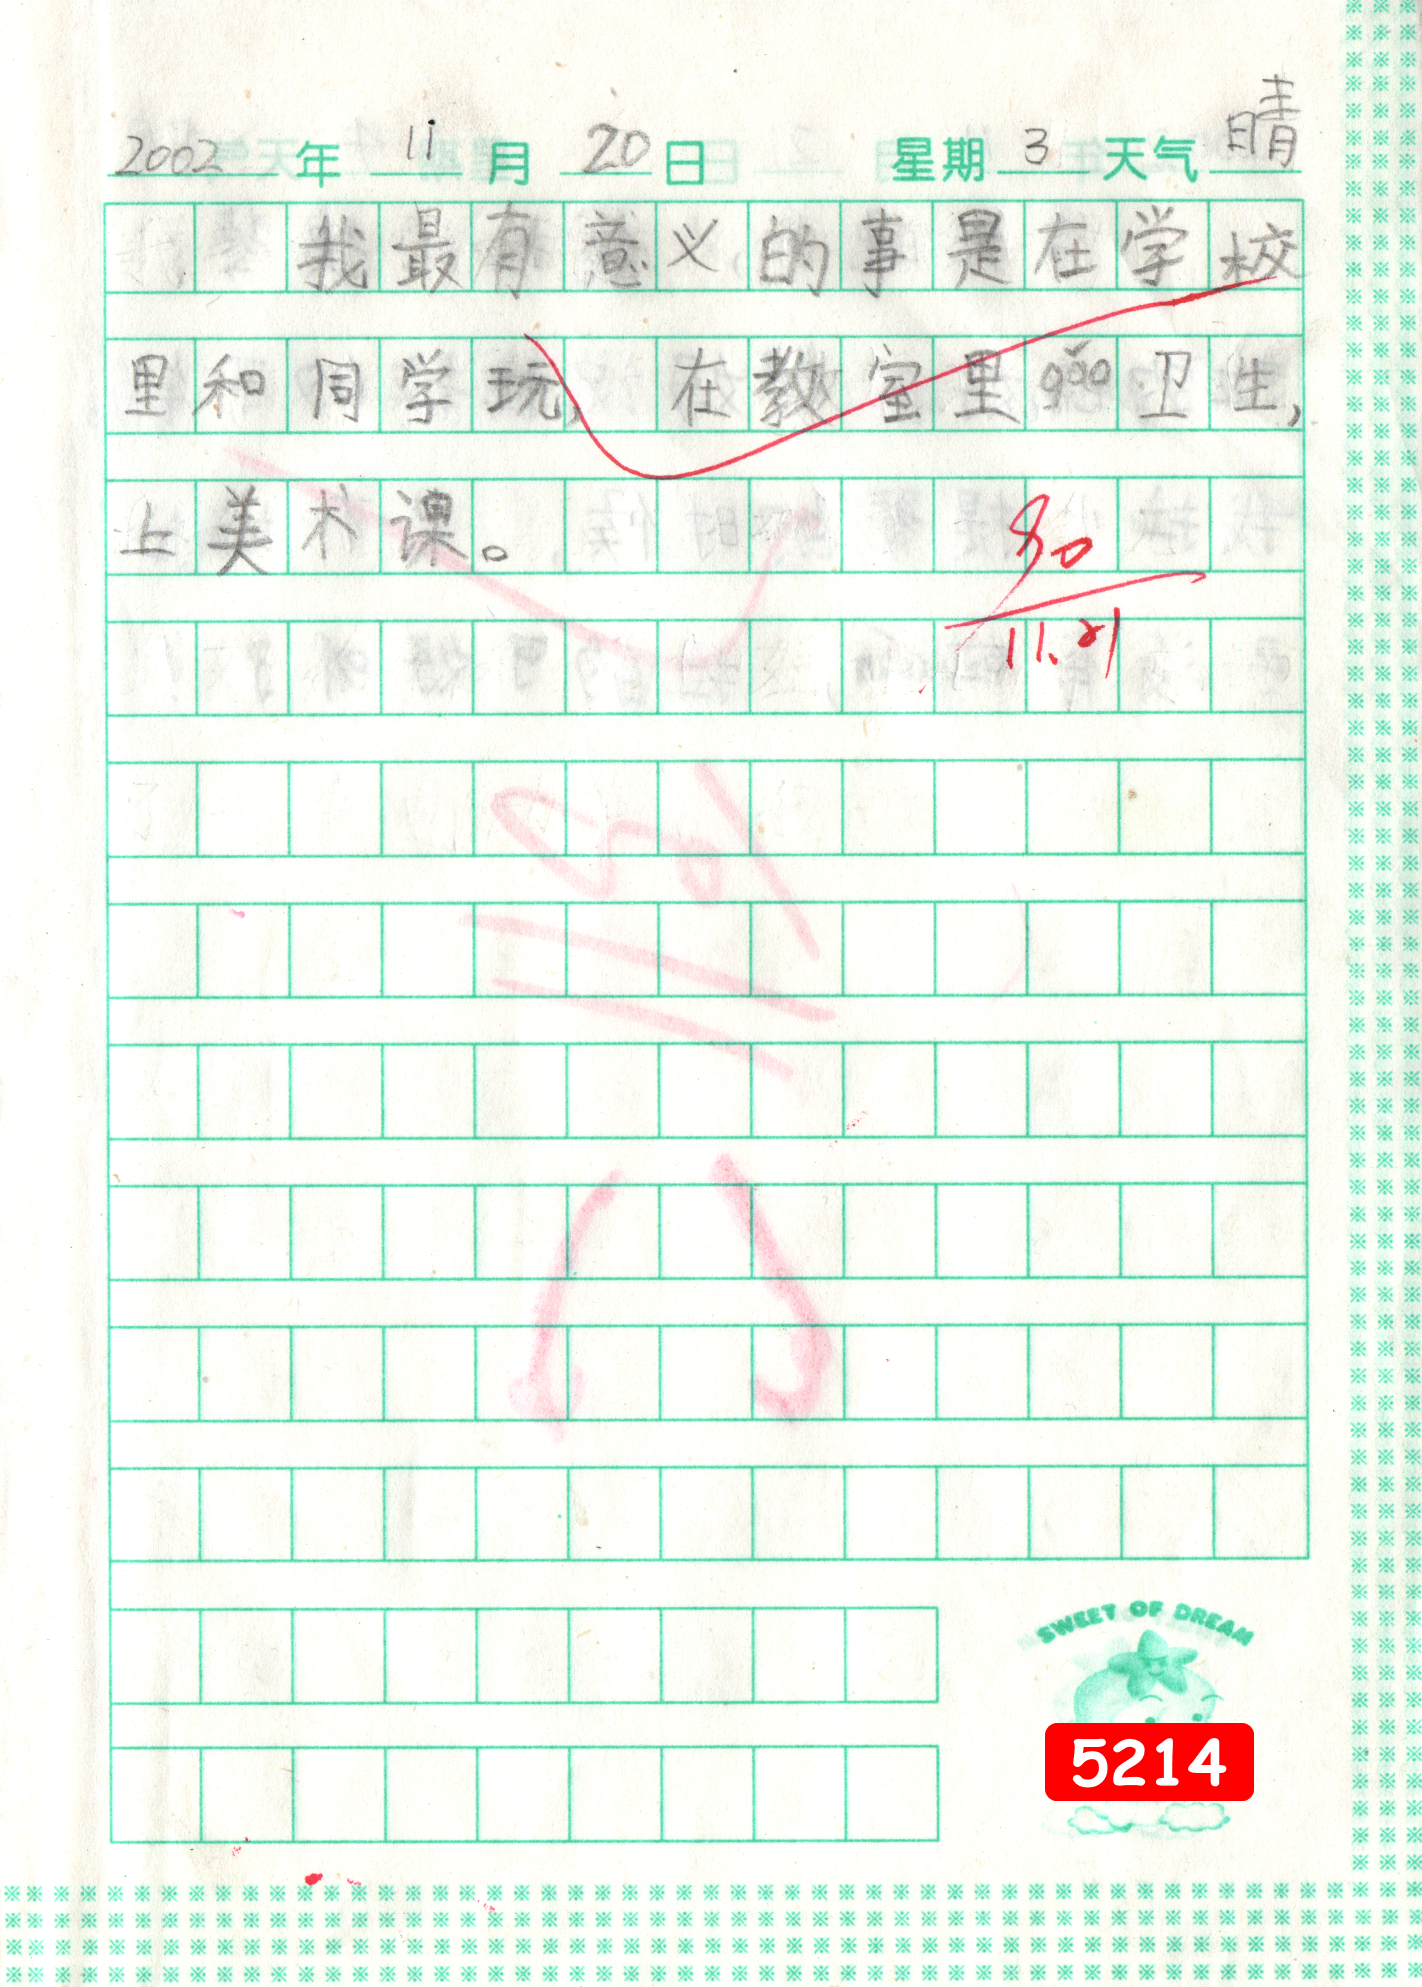 2002年 11月 20日 星期3天气晴
我最有意义的事是在学校
里和同学玩,在教室里gǎo卫生,
上美术课。
90
11.21
SWEET OF DREAM
5214